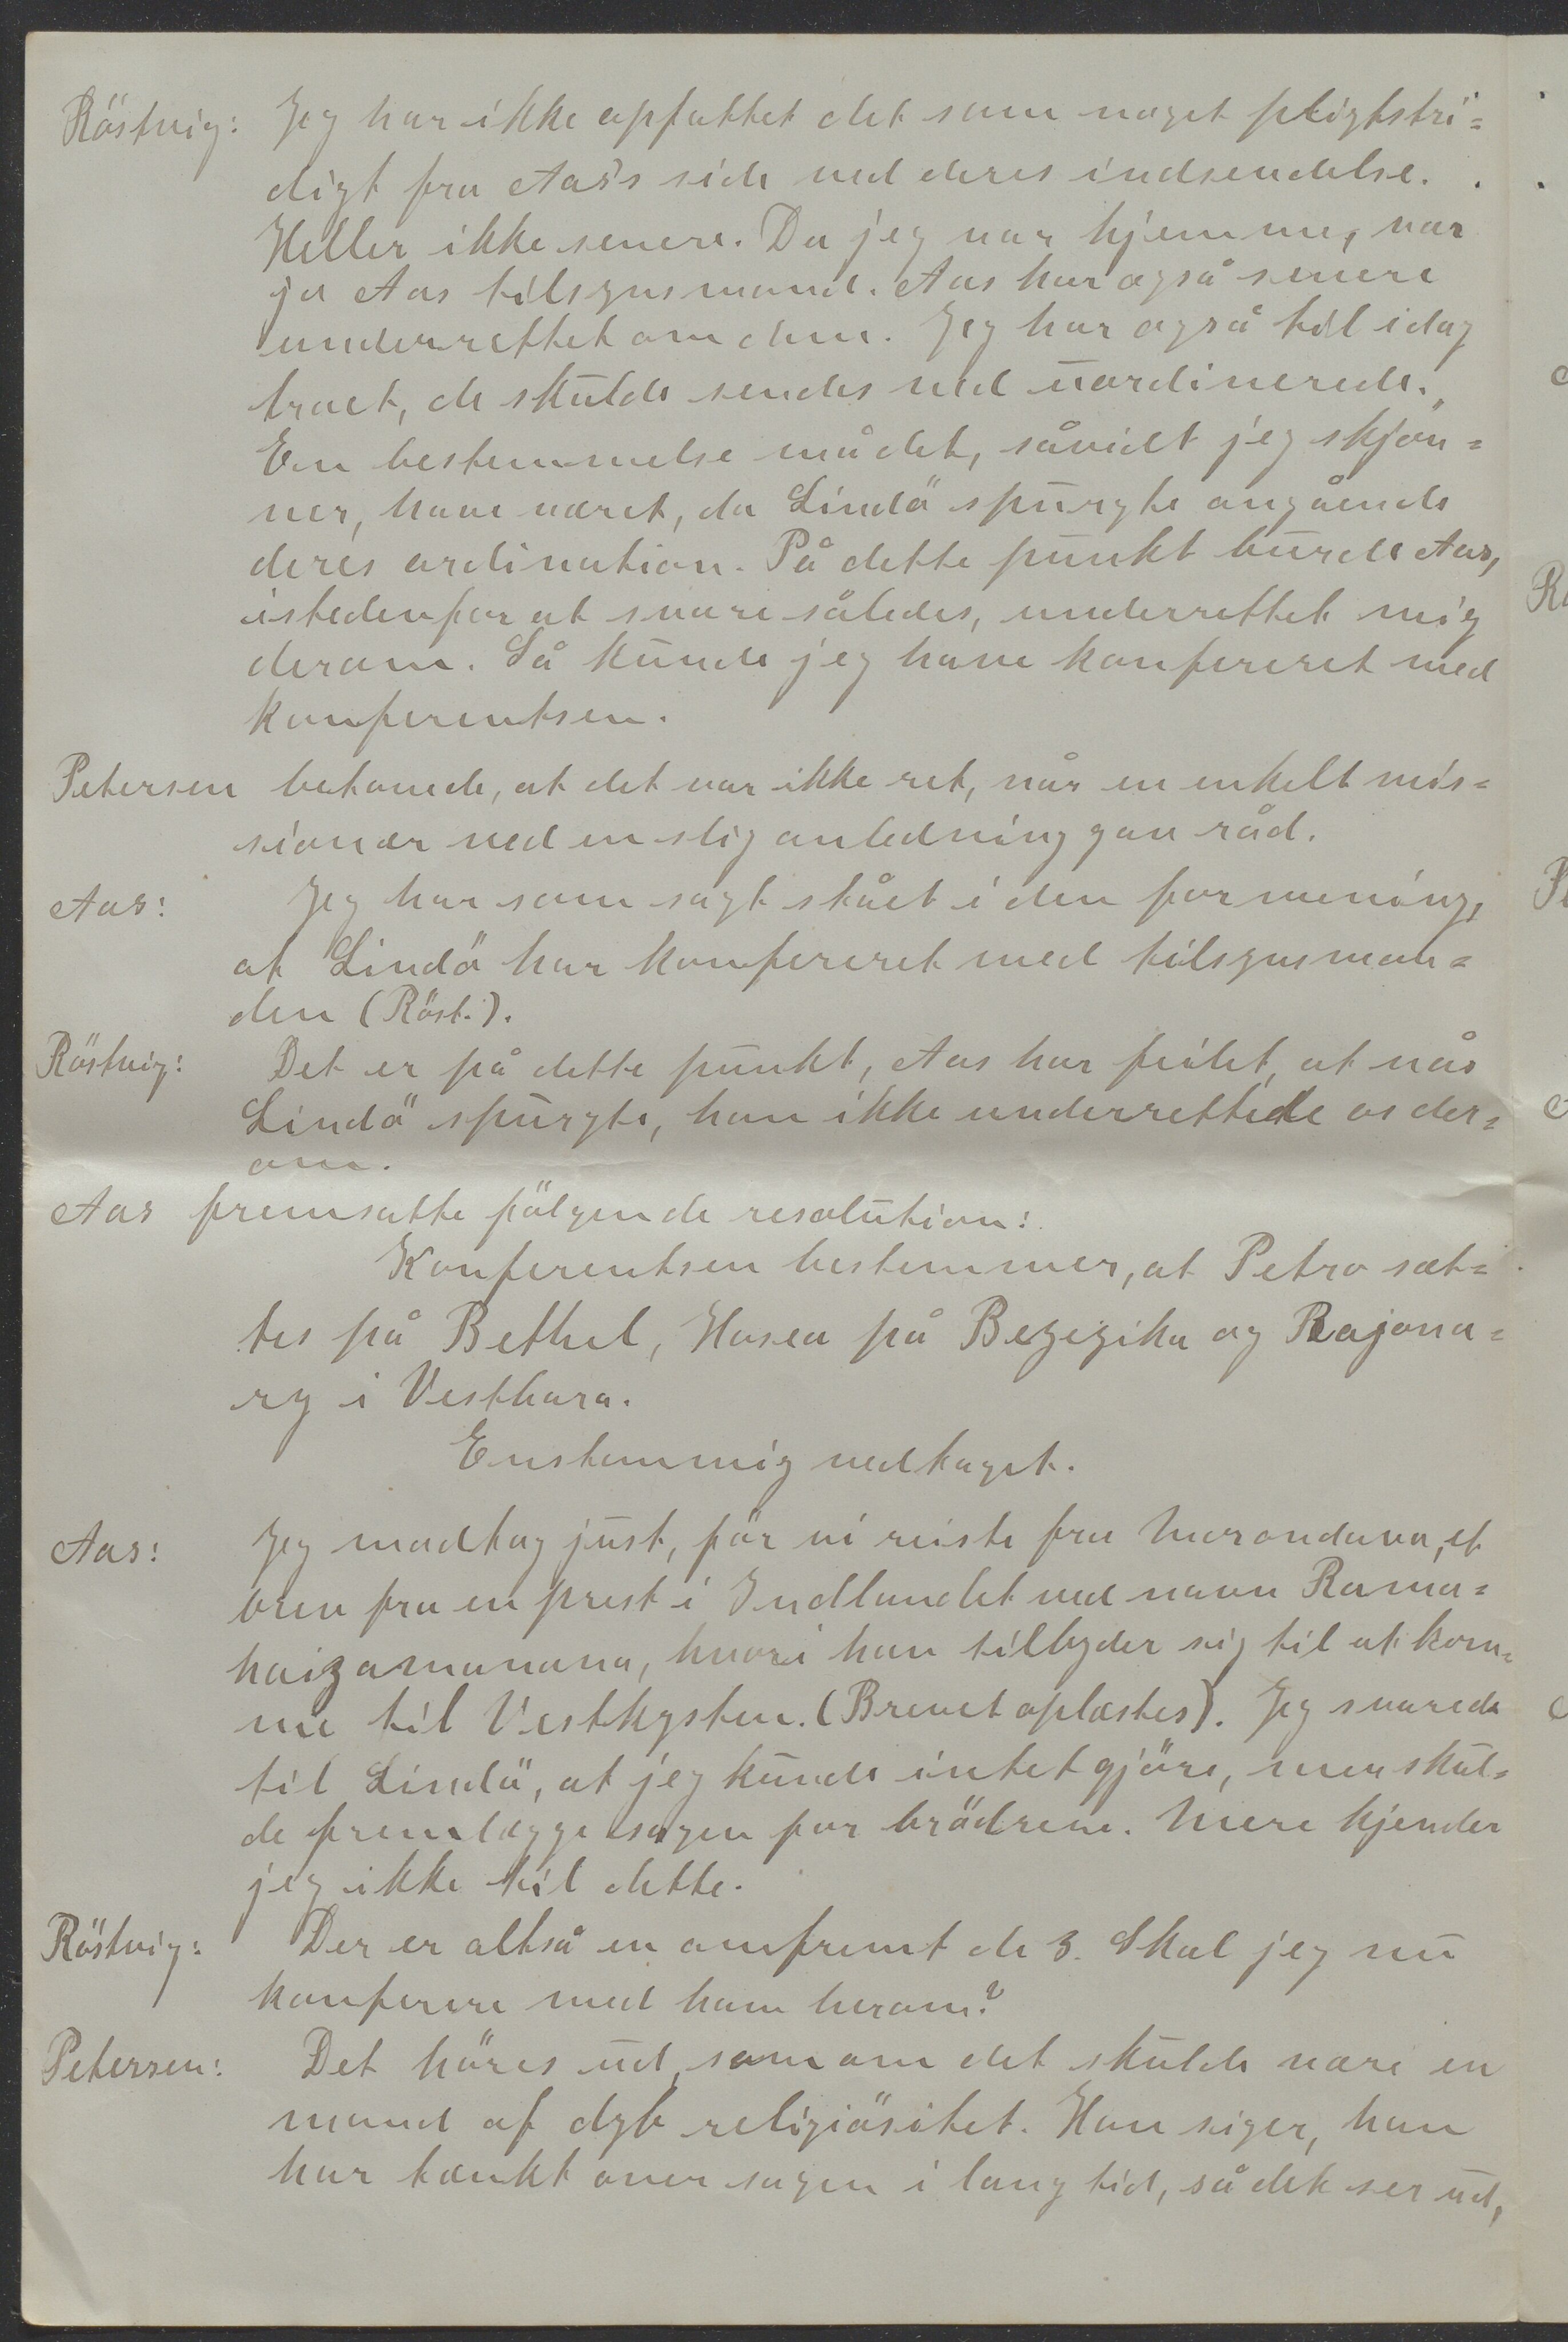 Röstvig: Jeg har ikke opfattet det som noget pligtstri=
digt fra Aas's side ved deres indsendelse.
Heller ikke senere. Da jeg var hjemme, var
ja Aas tilsynsmand. Aas har også senere
underrettet om dem. Jeg har også til idag
troet, de skulde sendes ned uordinerede.
En bestemmelse må det, såvidt jeg skjön=
ner, have været, da Lindö spurgte angående
deres ordination. På dette punkt burde Aas,
istedenfor at svare således, underrettet mig
derom. Så kunde jeg have konfereret med
konferentsen.
Petersen betonede, at det var ikke ret, når en enkelt mis=
sionær ved en slig anledning gav råd.
Aas: Jeg har som sagt stået i den formening,
at Lindö har konfereret med tilsynsman=
den (Röst.).
Röstvig: Det er på dette punkt, Aas har feilet, at når
Lindö spurgte, han ikke underrettede os der=
om.
Aas fremsatte fölgende resolution:
Konferentsen bestemmer, at Petro sæt=
tes på Bethel, Hosea på Bezezika og Rajona=
ry i Vesthara.
Enstemmig vedtaget.
Aas: Jeg modtog just, för vi reiste fra Morondava, et
brev fra en prest i Indlandet ved navn Rama=
haizamanana, hvori han tilbyder sig til at kom=
me til Vestkysten. (Brevet oplæstes). Jeg svarede
til Lindö, at jeg kunde intet gjöre, men skul=
de fremlægge sagen for brödrene. Mere kjender
jeg ikke til dette.
Röstvig: Der er altså en omfremt de 3. Skal jeg nu
konferere med ham herom?
Petersen: Det höres ud, som om det skulde være en
mand af dyb religiösitet. Han siger, han
har tænkt over sagen i lang tid, så det ser ud,